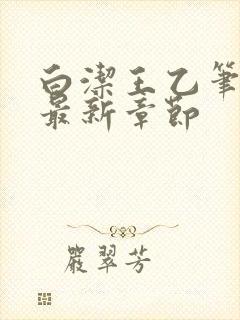 白潔王乙筆
最新章節
嚴翠芳